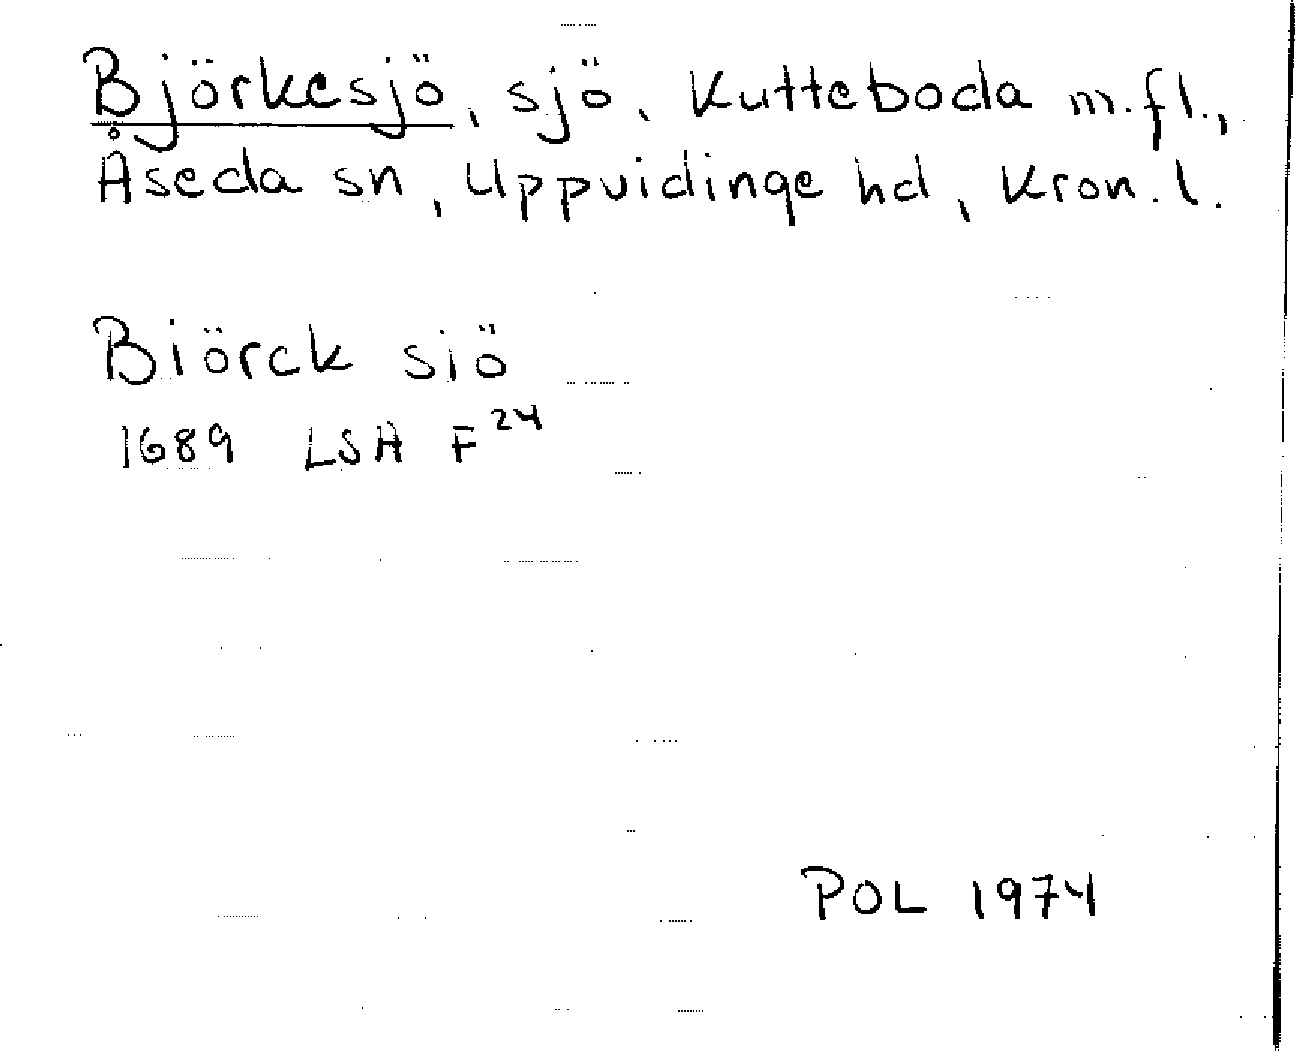 Björkesjö, sjö, Kutteboda m.fl.,
Åseda sn, Uppvidinge hd, Kron. l.
Biörck siö
1689 LSA F²⁴
POL 1974